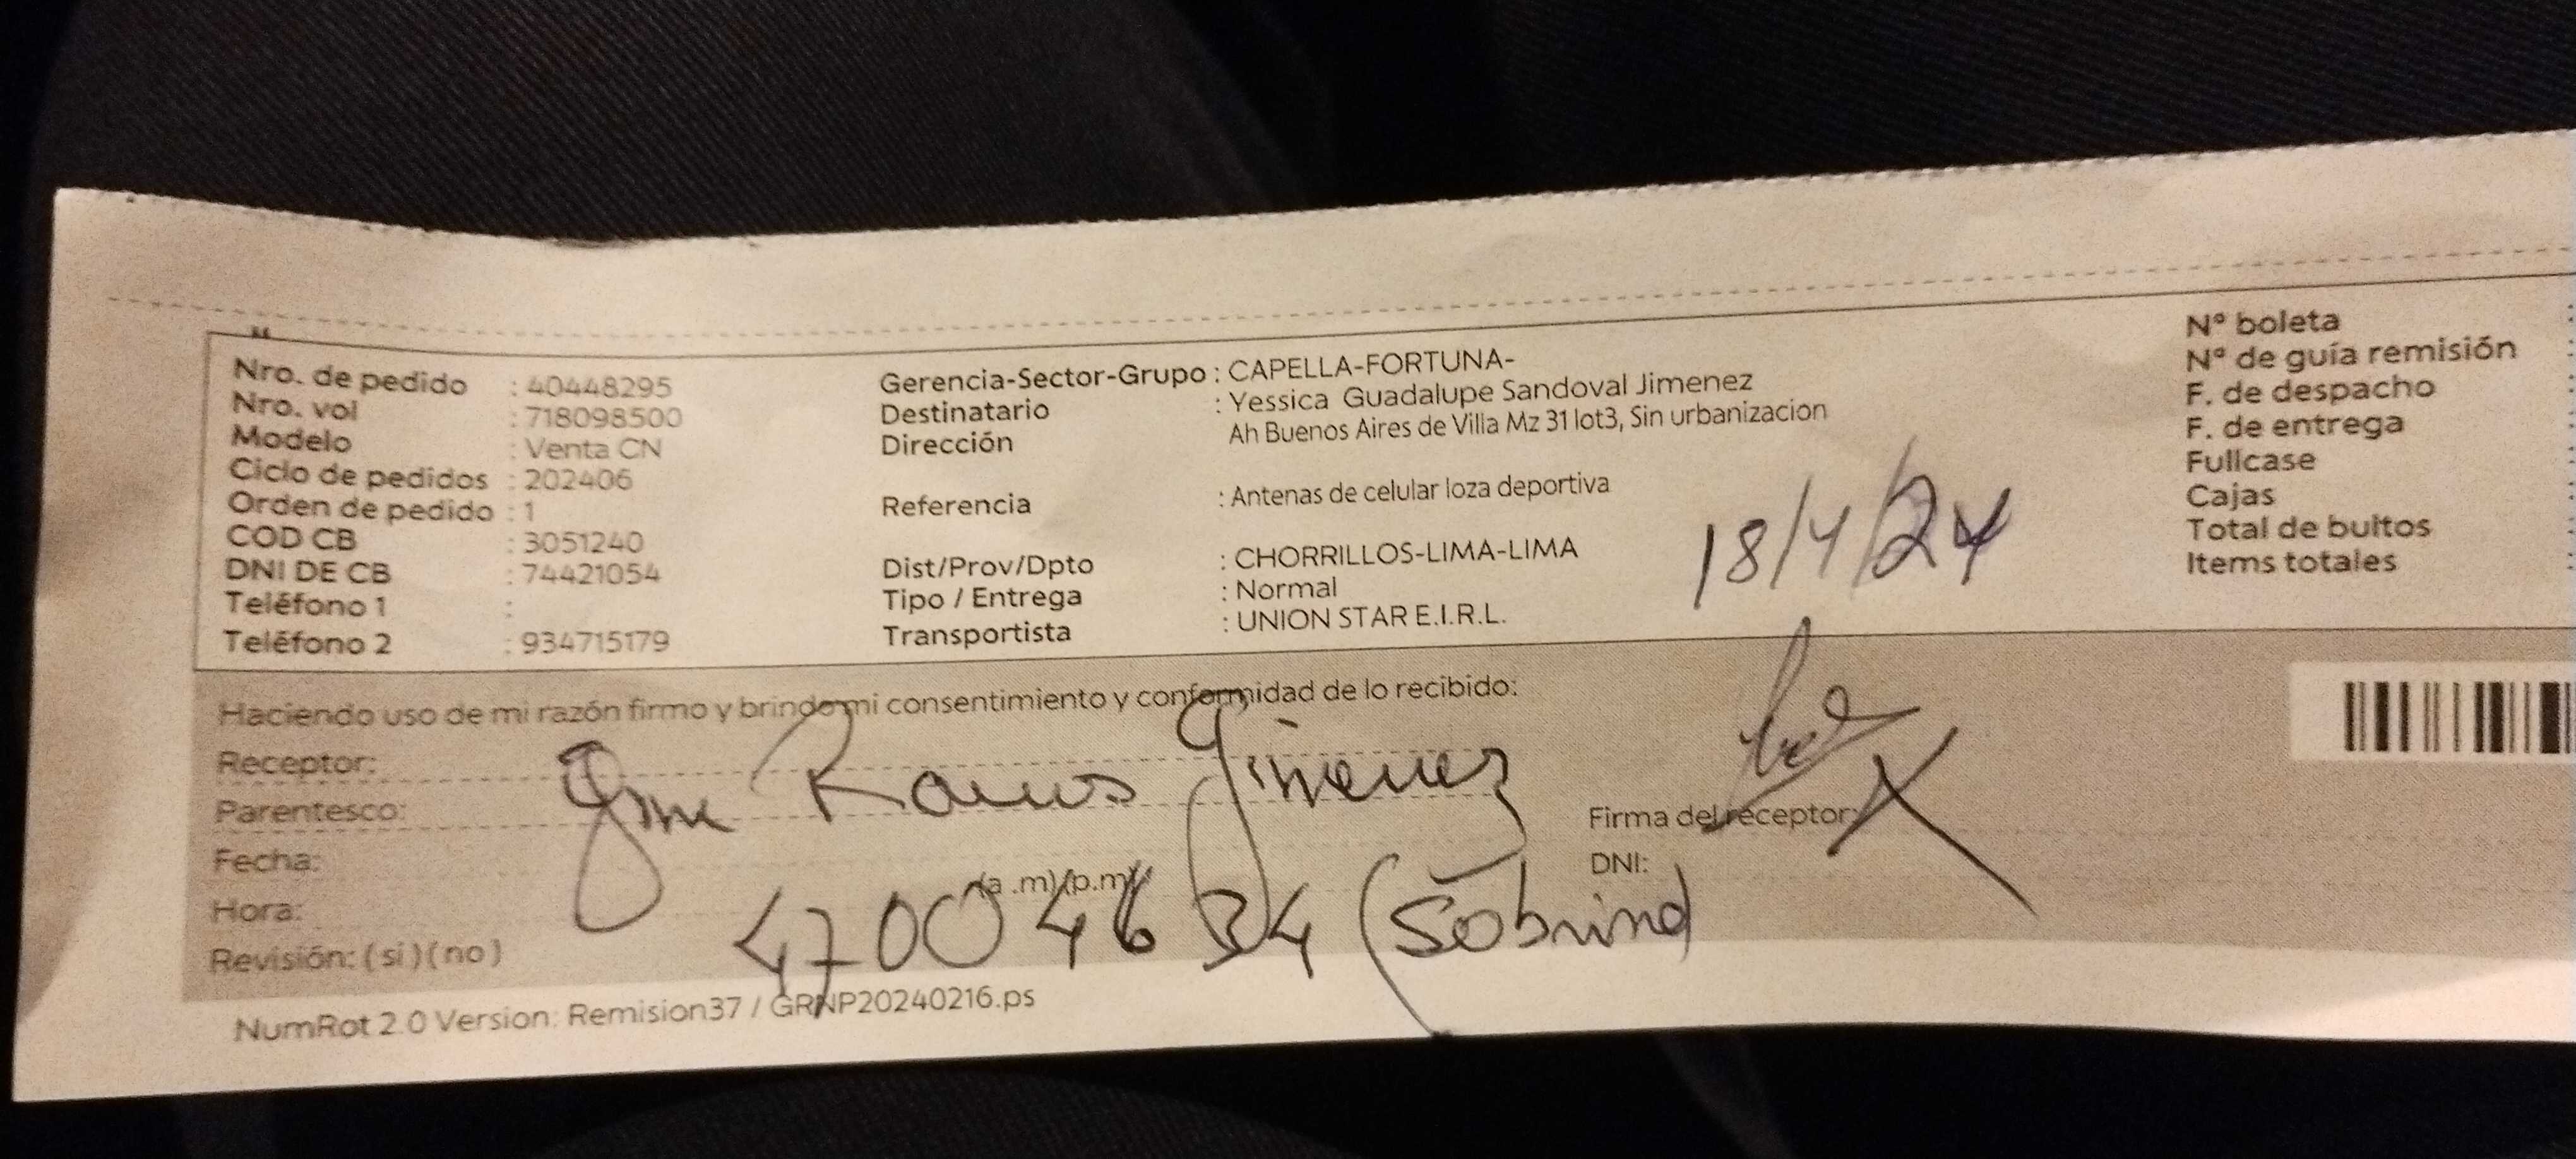 Nro. de pedido : 40448295
Nro. vol : 718098500
Modelo : Venta CN
Ciclo de pedidos : 202406
Orden de pedido : 1
COD CB : 3051240
DNI DE CB : 74421054
Teléfono 1 :
Teléfono 2 : 934715179
Gerencia-Sector-Grupo : CAPELLA-FORTUNA-
Destinatario : Yessica Guadalupe Sandoval Jimenez
Dirección Ah Buenos Aires de Villa Mz 31 lot3, Sin urbanizacion
Referencia : Antenas de celular loza deportiva
Dist/Prov/Dpto : CHORRILLOS-LIMA-LIMA
Tipo / Entrega : Normal
Transportista : UNION STAR E.I.R.L.
18/4/24
Nº boleta :
Nº de guía remisión :
F. de despacho :
F. de entrega :
Fullcase
Cajas
Total de bultos
Items totales
Haciendo uso de mi razón firmo y brindo mi consentimiento y conformidad de lo recibido:
Receptor:
Ramos Jimenez
Parentesco:
Firma del receptor:
Fecha:
DNI:
(a .m)(p.m)
Hora:
47004634 (sobrino)
Revisión: (si)(no)
NumRot 2.0 Version: Remision37 / GRNP20240216.ps